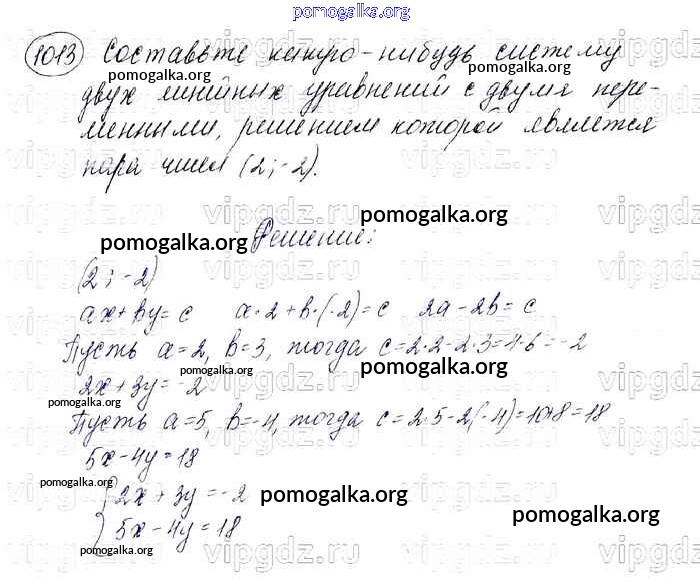 pomogalka.org
1013 Составьте какую-нибудь систему
pomogalka.org pomogalka.org
двух линейных уравнений с двумя пере-
менными, решением которой является
pomogalka.org pomogalka.org
пара чисел (2; -2).
vipgdz.ru vipgdz.ru vipgdz.ru
pomogalka.org
pomogalka.org Решение:
(2; -2)
ax+by=c a·2+b·(-2)=c 2a-2b=c
Пусть a=2, b=3, тогда c=2·2-2·3=4-6=-2
pomogalka.org pomogalka.org
2x+3y=-2
pomogalka.org
Пусть a=5, b=-4, тогда c=2·5-2(-4)=10+8=18
5x-4y=18
pomogalka.org
{2x+3y=-2
pomogalka.org
5x-4y=18
pomogalka.org
pomogalka.org